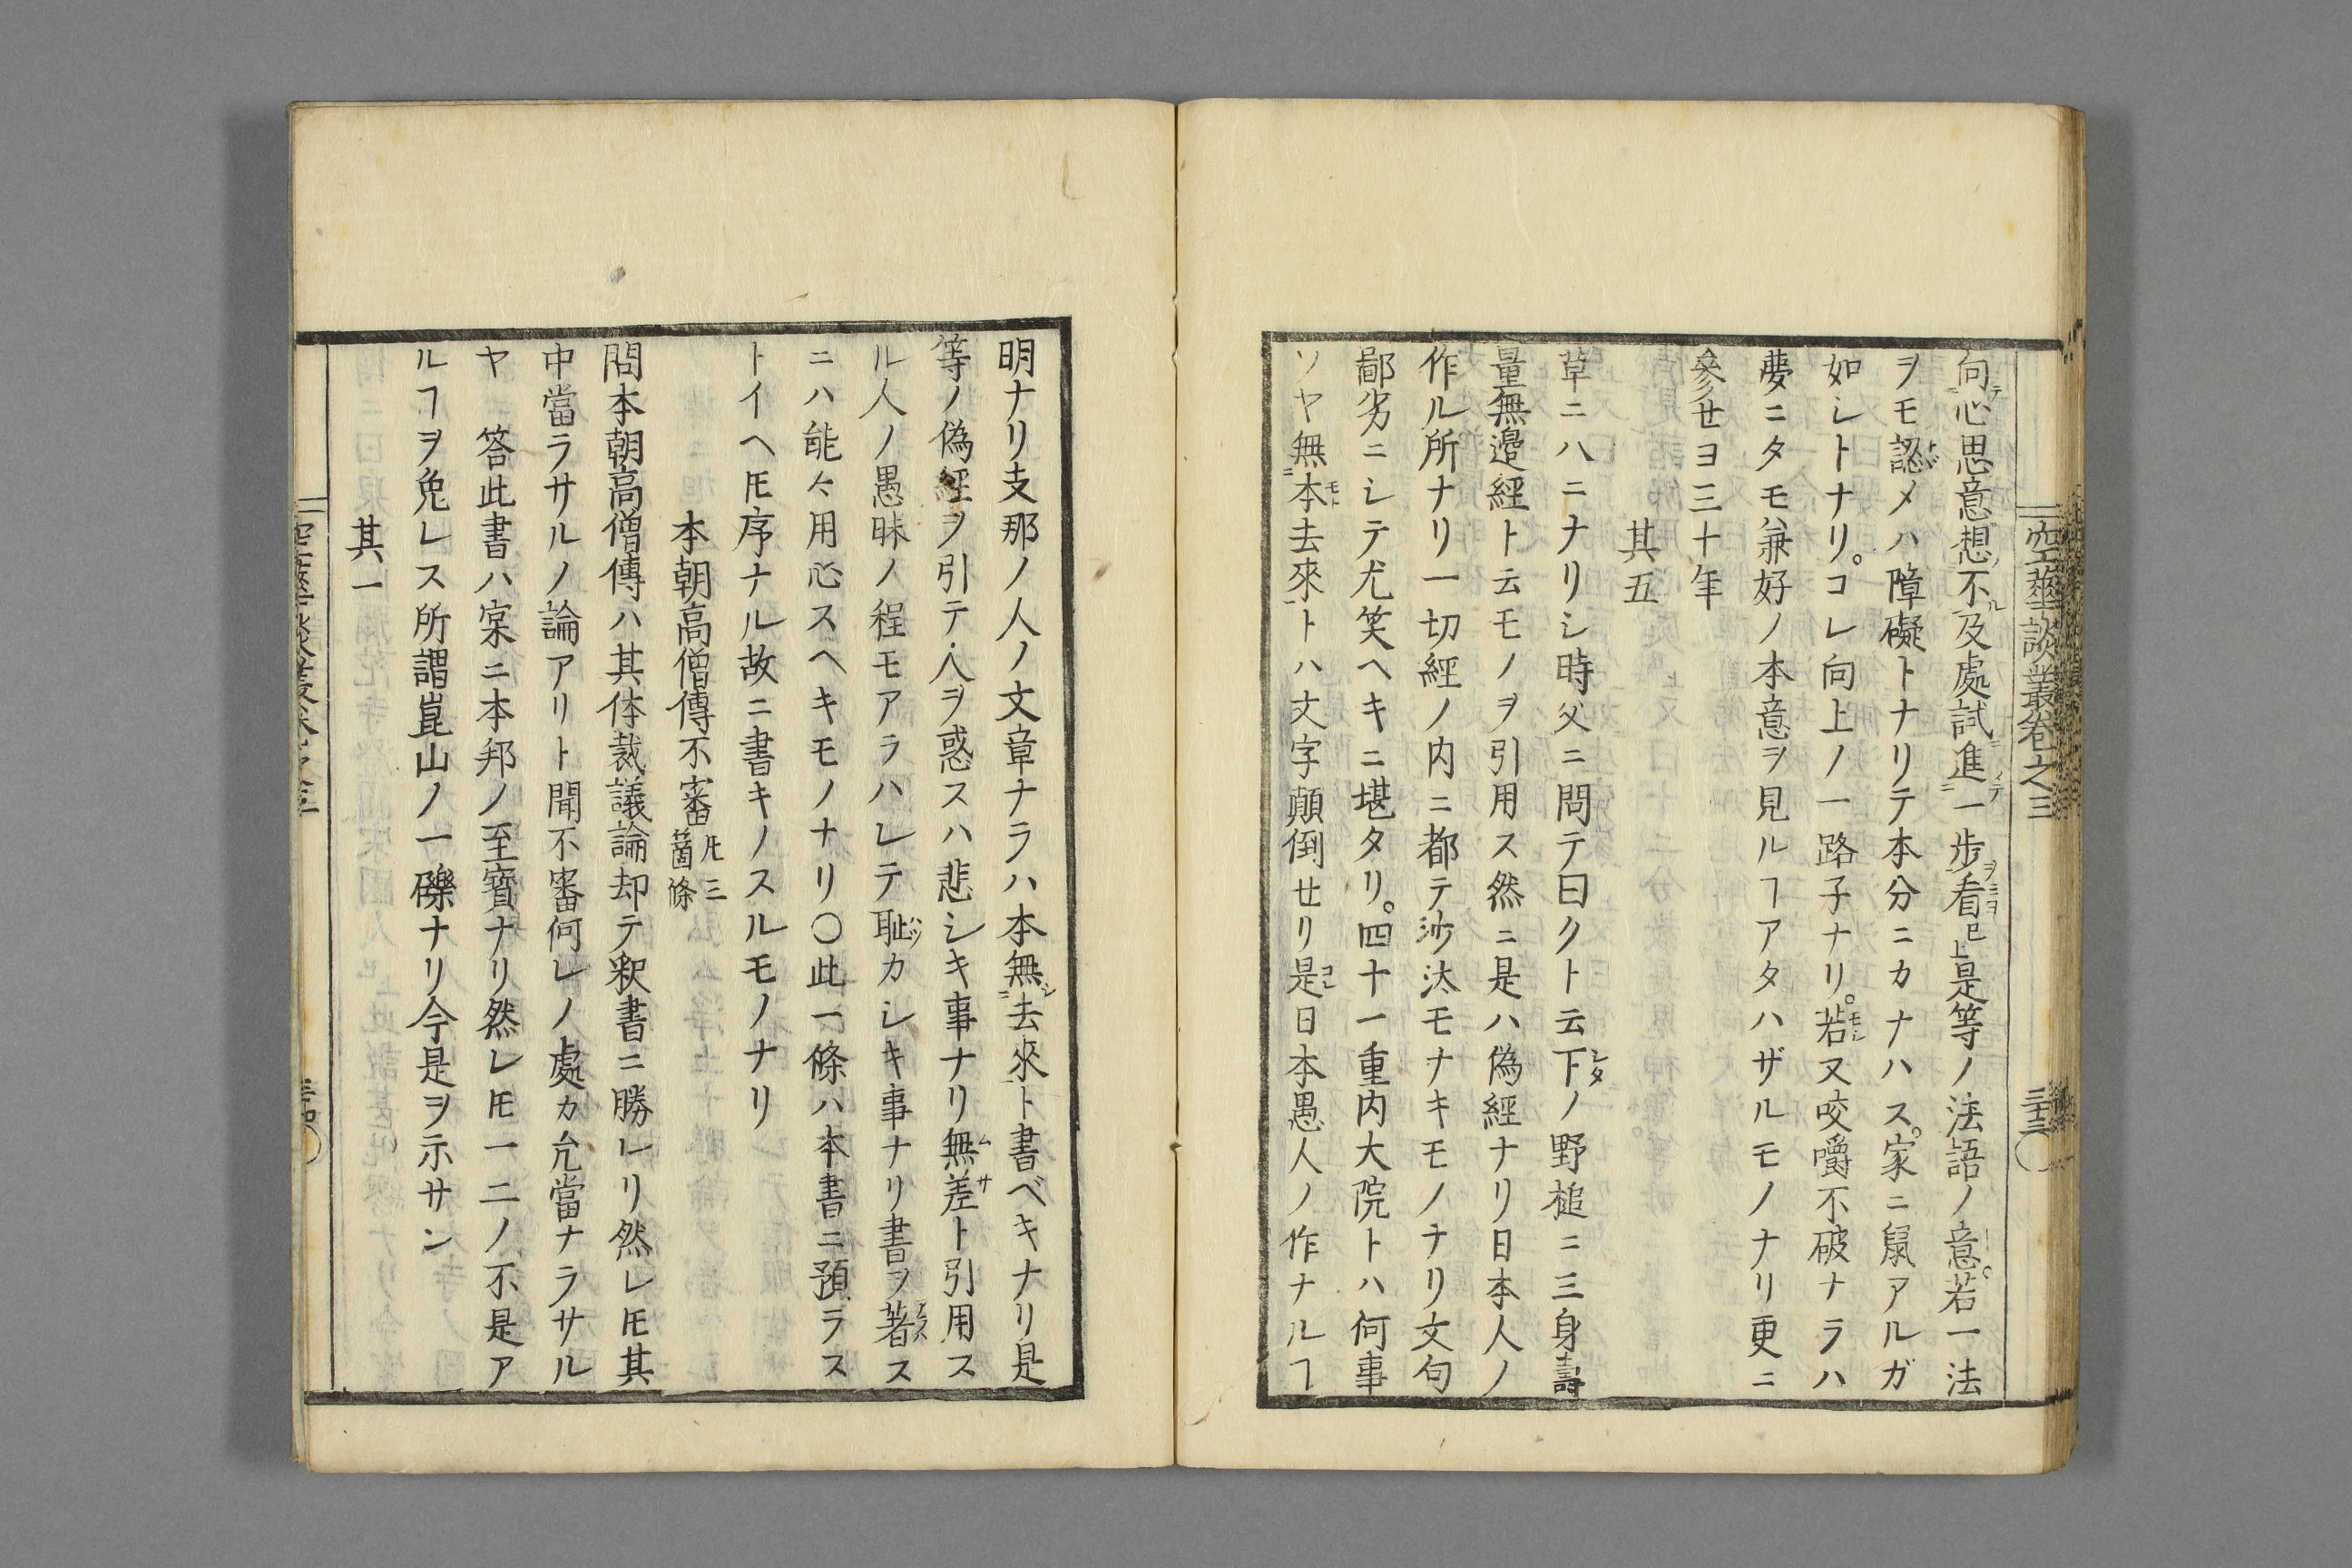 空華談叢卷之三
三十三
向テ心思意想ノ不ル及處ニ試ニ進テ一歩ヲ看ミヨ已上是等ノ法語ノ意。若一法
ヲモ認メハ障礙トナリテ本分ニカナハス。家ニ鼠アルガ
如シトナリ。コレ向上ノ一路子ナリ。若モシ又咬嚼不破ナラハ
夢ニタモ兼好ノ本意ヲ見ルヿアタハザルモノナリ更ニ
參セヨ三十年
其五
草ニハ二ナリシ時父ニ問テ曰クト云下シタノ野槌ニ三身壽
量無邉經ト云モノヲ引用ス然ニ是ハ偽經ナリ日本人ノ
作ル所ナリ一切經ノ内ニ都テ沙汰モナキモノナリ文句
鄙劣ニシテ尤笑ヘキニ堪タリ。四十一重内大院トハ何事
ソヤ無本モト去來トハ文字顛倒せリ是コレ日本愚人ノ作ナルヿ
明ナリ支那ノ人ノ文章ナラハ本無シ去來ト書ベキナリ是
等ノ偽經ヲ引テ人ヲ惑スハ悲シキ事ナリ無ム差サト引用ス
ル人ノ愚昧ノ程モアラハレテ耻ハツカシキ事ナリ書ヲ著アラハス
ニハ能々用心スヘキモノナリ〇此一條ハ本書ニ預ラス
トイヘ𪜈序ナル故ニ書キノスルモノナリ
本朝高僧傳不審凡三箇條
問本朝高僧傳ハ其体裁議論却テ釈書ニ勝レリ然レ𪜈其
中當ラサルノ論アリト聞不審何レノ處カ允當ナラサル
ヤ 答此書ハ寔ニ本邦ノ至寶ナリ然レ𪜈一二ノ不是ア
ルヿヲ免レス所謂崑山ノ一礫ナリ今是ヲ示サン
其一